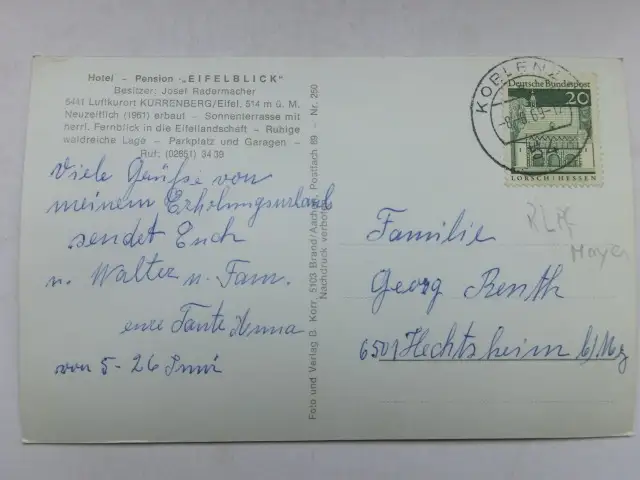 Hotel - Pension - „EIFELBLICK"
Besitzer: Josef Radermacher
5441 Luftkurort KÜRRENBERG/Eifel, 514 m ü. M.
Neuzeitlich (1961) erbaut - Sonnenterrasse mit
herrl. Fernblick in die Eifellandschaft - Ruhige
waldreiche Lage - Parkplatz und Garagen -
Ruf: (02651) 34 39
Viele Grüße von
meinem Erholungsurlaub
sendet Euch
u. Walter u. Fam.
eure Tante Anna
vom 5-26 Juni
Foto und Verlag B. Korr, 5103 Brand/Aachen, Postfach 89 - Nr. 260
Nachdruck verboten
KOBLENZ
54
Deutsche Bundespost
20
LORSCH/HESSEN
RLPf
Mayen
Familie
Georg Renth
6501 Hechtsheim b/Mz